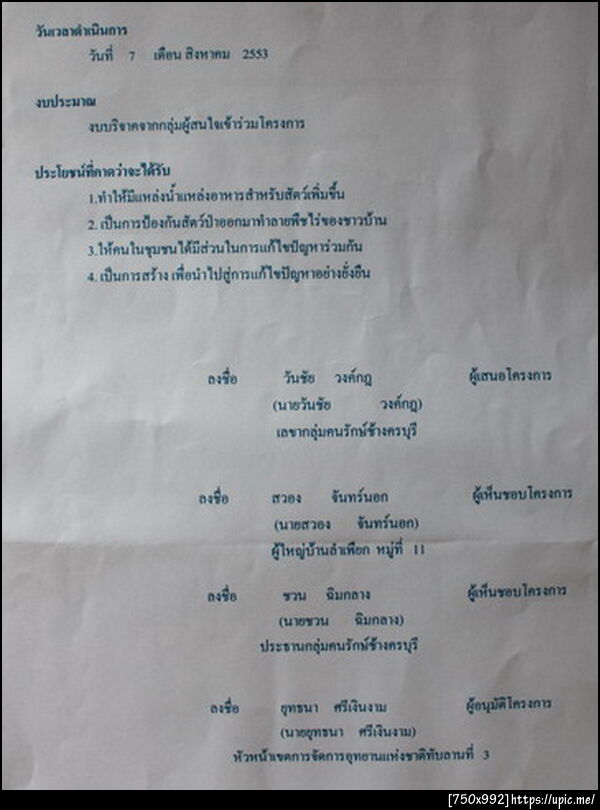 วันเวลาดำเนินการ
วันที่ 7 เดือน สิงหาคม 2553
งบประมาณ
งบบริจาคจากกลุ่มผู้สนใจเข้าร่วมโครงการ
ประโยชน์ที่คาดว่าจะได้รับ
1.ทำให้มีแหล่งน้ำแหล่งอาหารสำหรับสัตว์เพิ่มขึ้น
2. เป็นการป้องกันสัตว์ป่าออกมาทำลายพืชไร่ของชาวบ้าน
3.ให้คนในชุมชนได้มีส่วนในการแก้ไขปัญหาร่วมกัน
4. เป็นการสร้าง เพื่อนำไปสู่การแก้ไขปัญหาอย่างยั่งยืน
ลงชื่อ วันชัย วงค์กฎ ผู้เสนอโครงการ
(นายวันชัย วงค์กฎ)
เลขากลุ่มคนรักษ์ช้างครบุรี
ลงชื่อ สวอง จันทร์นอก ผู้เห็นชอบโครงการ
(นายสวอง จันทร์นอก)
ผู้ใหญ่บ้านลำเพียก หมู่ที่ 11
ลงชื่อ ชวน ฉิมกลาง ผู้เห็นชอบโครงการ
(นายชวน ฉิมกลาง)
ประธานกลุ่มคนรักษ์ช้างครบุรี
ลงชื่อ ยุทธนา ศรีเงินงาม ผู้อนุมัติโครงการ
(นายยุทธนา ศรีเงินงาม)
หัวหน้าเขตการจัดการอุทยานแห่งชาติทับลานที่ 3
[750x992]https://upic.me/